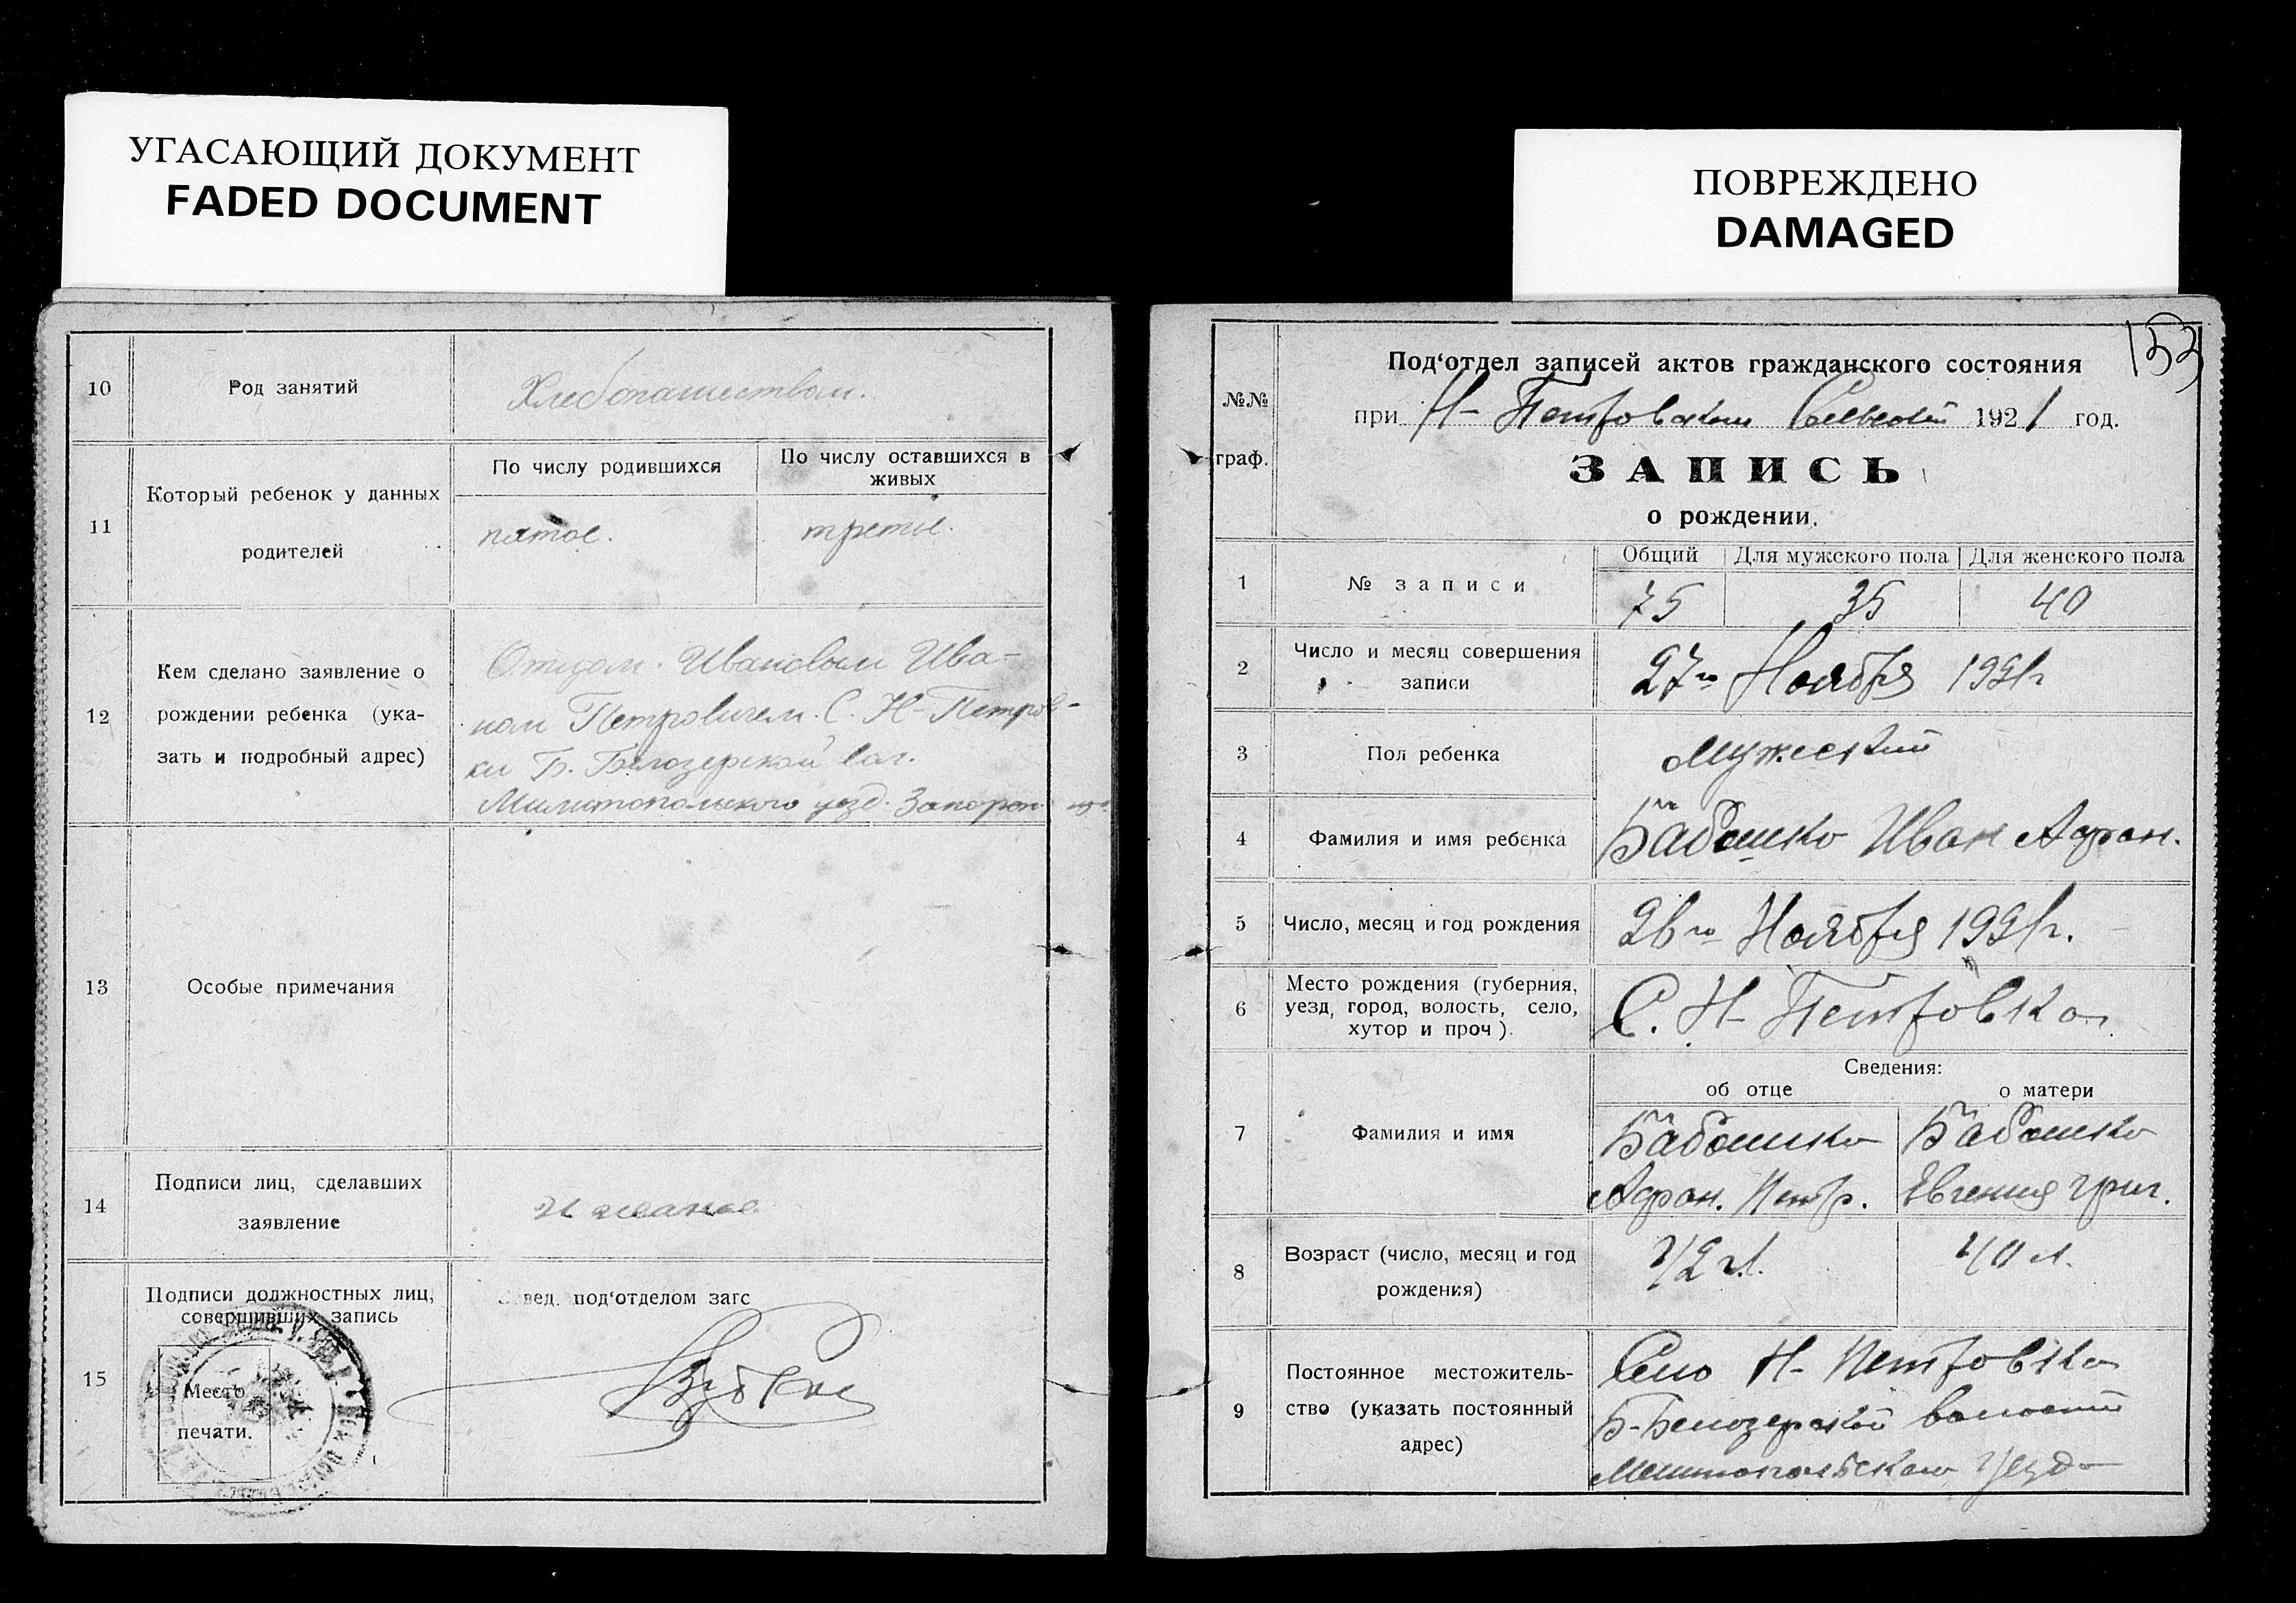 УГАСАЮЩИЙ ДОКУМЕНТ
FADED DOCUMENT
10
Род занятий
Хлебопашеством.
11
Который ребенок у данных
родителей
По числу родившихся
По числу оставшихся в
живых
пятое.
третье.
12
Кем сделано заявление о
рождении ребенка (ука-
зать и подробный адрес)
Отцом. Ивановым Ива-
ном Петровичем. С. Н-Петров-
ки Б. Белозерской вол.
Милитопольского уезд. Запорож.
13
Особые примечания
14
Подписи лиц, сделавших
заявление
15
Подписи должностных лиц,
совершивших запись
Место
печати.
вед. под‘отделом загс
ПОВРЕЖДЕНО
DAMAGED
153
№№
граф.
Под‘отдел записей актов гражданского состояния
при Н-Петровском 1921 год.
ЗАПИСЬ
о рождении.
1
№ записи
Общий
Для мужского пола
Для женского пола
75
35
40
2
Число и месяц совершения
записи
27го Ноября 1921г
3
Пол ребенка
Мужеский
4
Фамилия и имя ребенка
Бабошко Иван Афан.
5
Число, месяц и год рождения
26го Ноября 1921г.
6
Место рождения (губерния,
уезд, город, волость, село,
хутор и проч).
С. Н-Петровка
Сведения:
об отце
о матери
7
Фамилия и имя
Бабошко
Афан. Петр.
Бабошко
Евгения Григ.
8
Возраст (число, месяц и год
рождения)
42 л.
40 л.
9
Постоянное местожитель-
ство (указать постоянный
адрес)
Село Н-Петровка
Б-Белозерской волости
Мелитопольского уезда